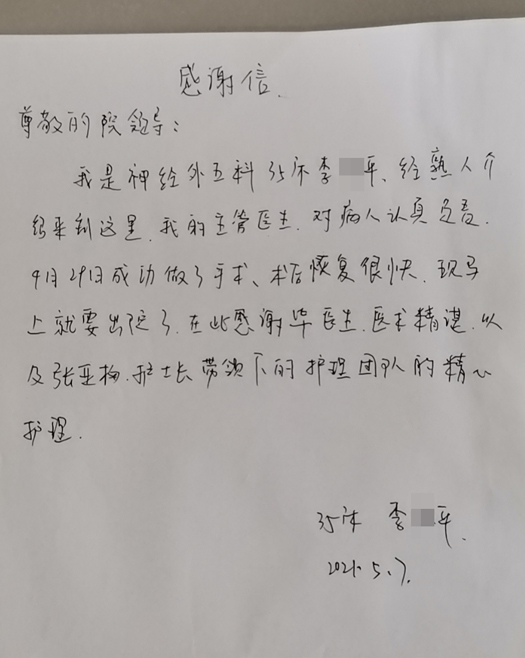 感谢信.
尊敬的院领导:
我是神经外五科35床李平、经熟人介
绍来到这里.我的主管医生.对病人认真负责.
4月29日成功做了手术、术后恢复很快.现马
上就要出院了.在此感谢毕医生.医术精湛.以
及张亚 护士长带领下的护理团队的精心
护理.
35床 李平.
2021.5.7.